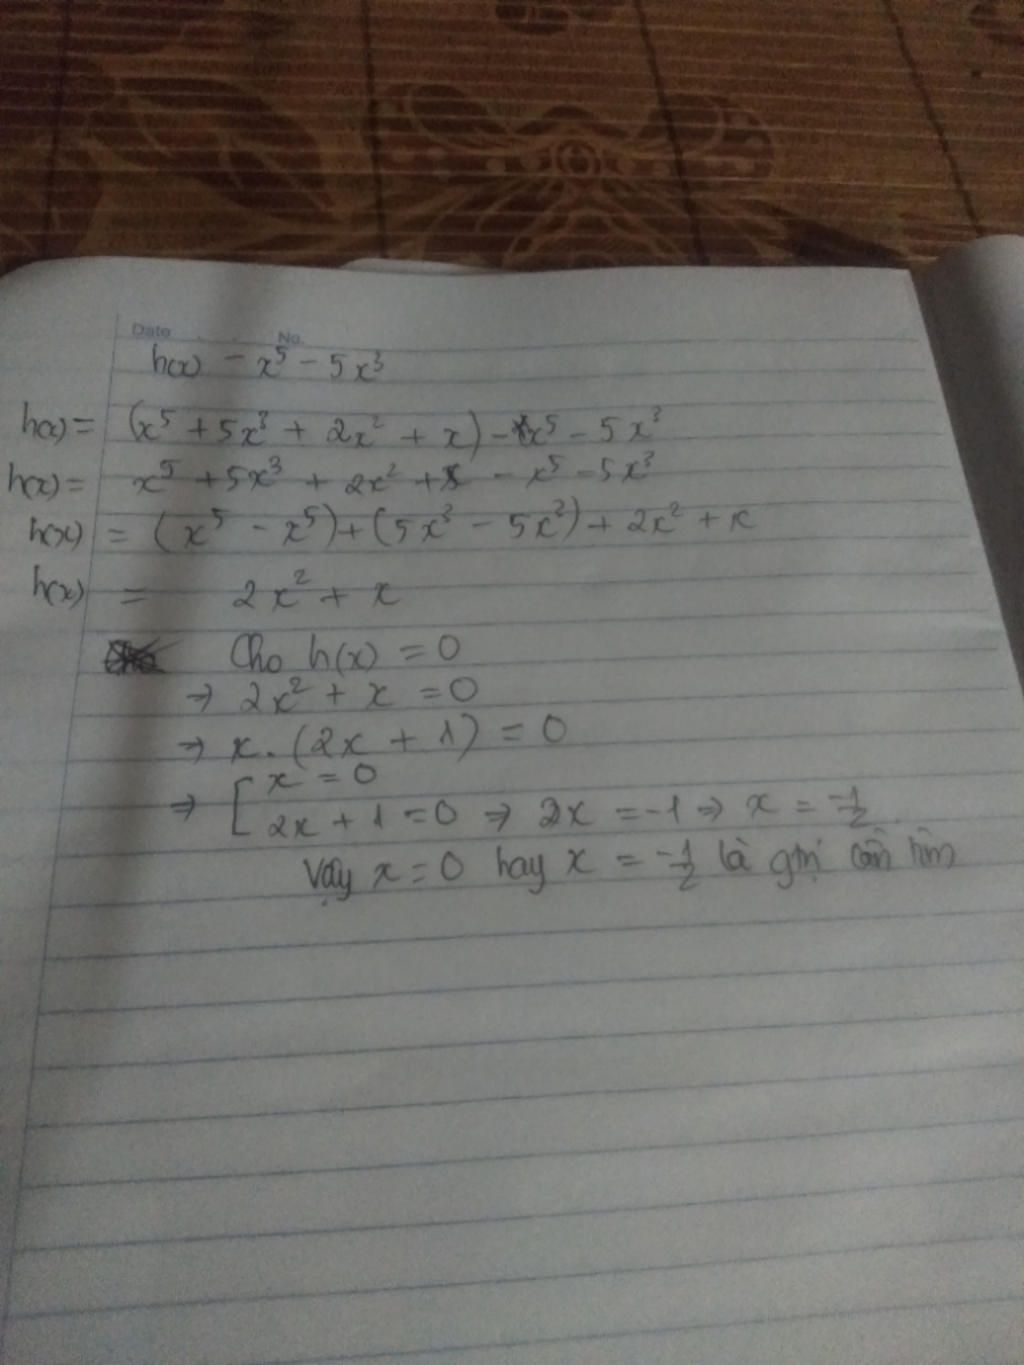 Date No.
h(x) - x⁵ - 5x³
h(x) = (x⁵ + 5x³ + 2x² + x) - x⁵ - 5x³
h(x) = x⁵ + 5x³ + 2x² + x - x⁵ - 5x³
h(x) = (x⁵ - x⁵) + (5x³ - 5x²) + 2x² + x
h(x) = 2x² + x
Cho h(x) = 0
⇒ 2x² + x = 0
⇒ x. (2x + 1) = 0
⇒ [ x = 0
2x + 1 = 0 ⇒ 2x = -1 ⇒ x = -1/2
Vậy x = 0 hay x = -1/2 là gtrị cần tìm